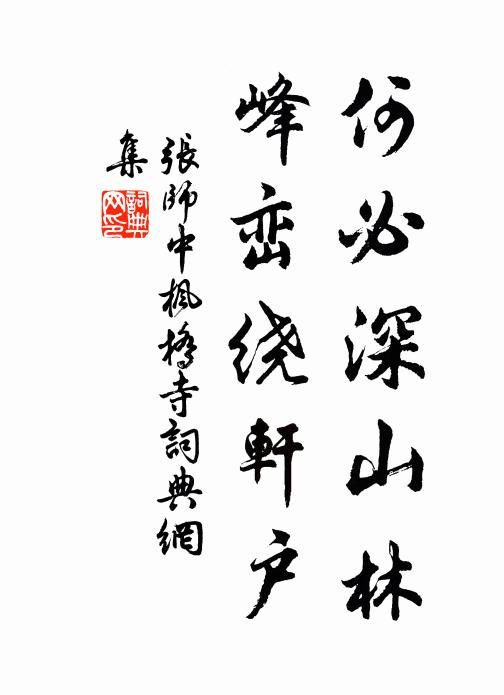 何必深山林
峰峦绕軒户
張師中楓橋寺詞典網
集
詞典
网印